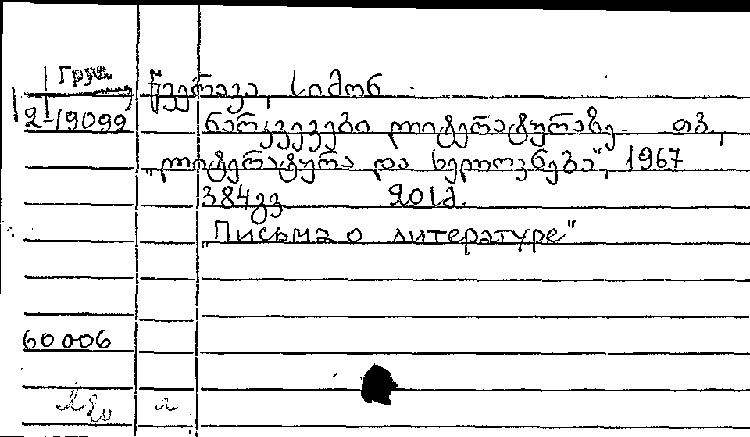 Груз.
წვერავა, სიმონ
2-19099 ნარკვევები ლიტერატურაზე. თბ.,
„ლიტერატურა და ხელოვნება“, 1967
384 გვ 201გ.
„Письма о литературе"
60006